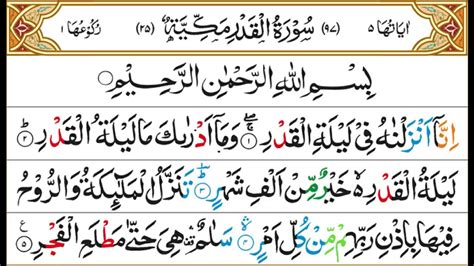 اٰيَاتُهَا ٥ (٩٧) سُوْرَةُ الْقَدْرِ مَكِّيَّةٌ (٢٥) رُكُوْعُهَا ١
بِسْمِ اللّٰهِ الرَّحْمٰنِ الرَّحِيْمِ
اِنَّاۤ اَنْزَلْنٰهُ فِيْ لَيْلَةِ الْقَدْرِ ۝١ وَمَاۤ اَدْرٰىكَ مَا لَيْلَةُ الْقَدْرِ ۝٢
لَيْلَةُ الْقَدْرِ ەۙ خَيْرٌ مِّنْ اَلْفِ شَهْرٍ ۝٣ تَنَزَّلُ الْمَلٰٓئِكَةُ وَالرُّوْحُ
فِيْهَا بِاِذْنِ رَبِّهِمْ مِّنْ كُلِّ اَمْرٍ ۝٤ سَلٰمٌ ۛ هِيَ حَتّٰى مَطْلَعِ الْفَجْرِ ۝٥